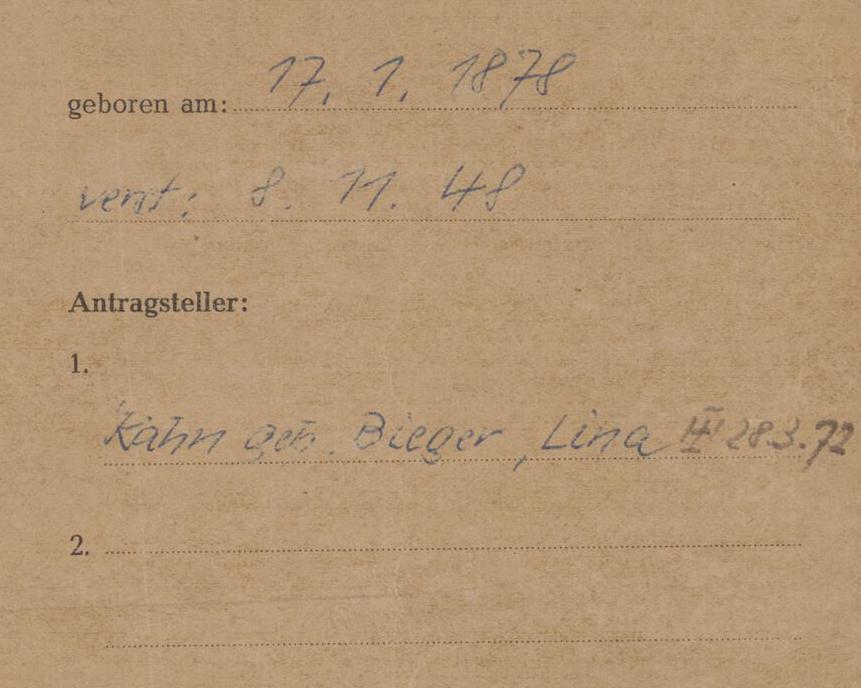 geboren am: 17. 1. 1878
verst: 8. 11. 48
Antragsteller:
1.
Kahn geb. Bieger, Lina 28.3.72
2.